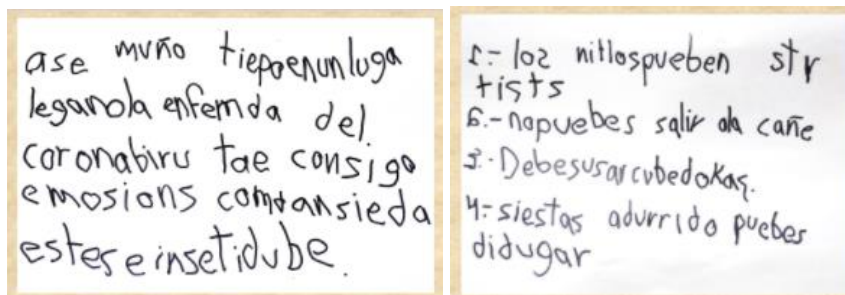 ase muño tiepoenunluga
leganola enfemda del
coronabiru tae consigo
emosions comoansieda
estes e insetidube.
1.- los niñospueben str
tists
2.- napuebes salir ala cañe
3.- Debesusarcubedokas.
4.- siestas adurrido puebes
didugar